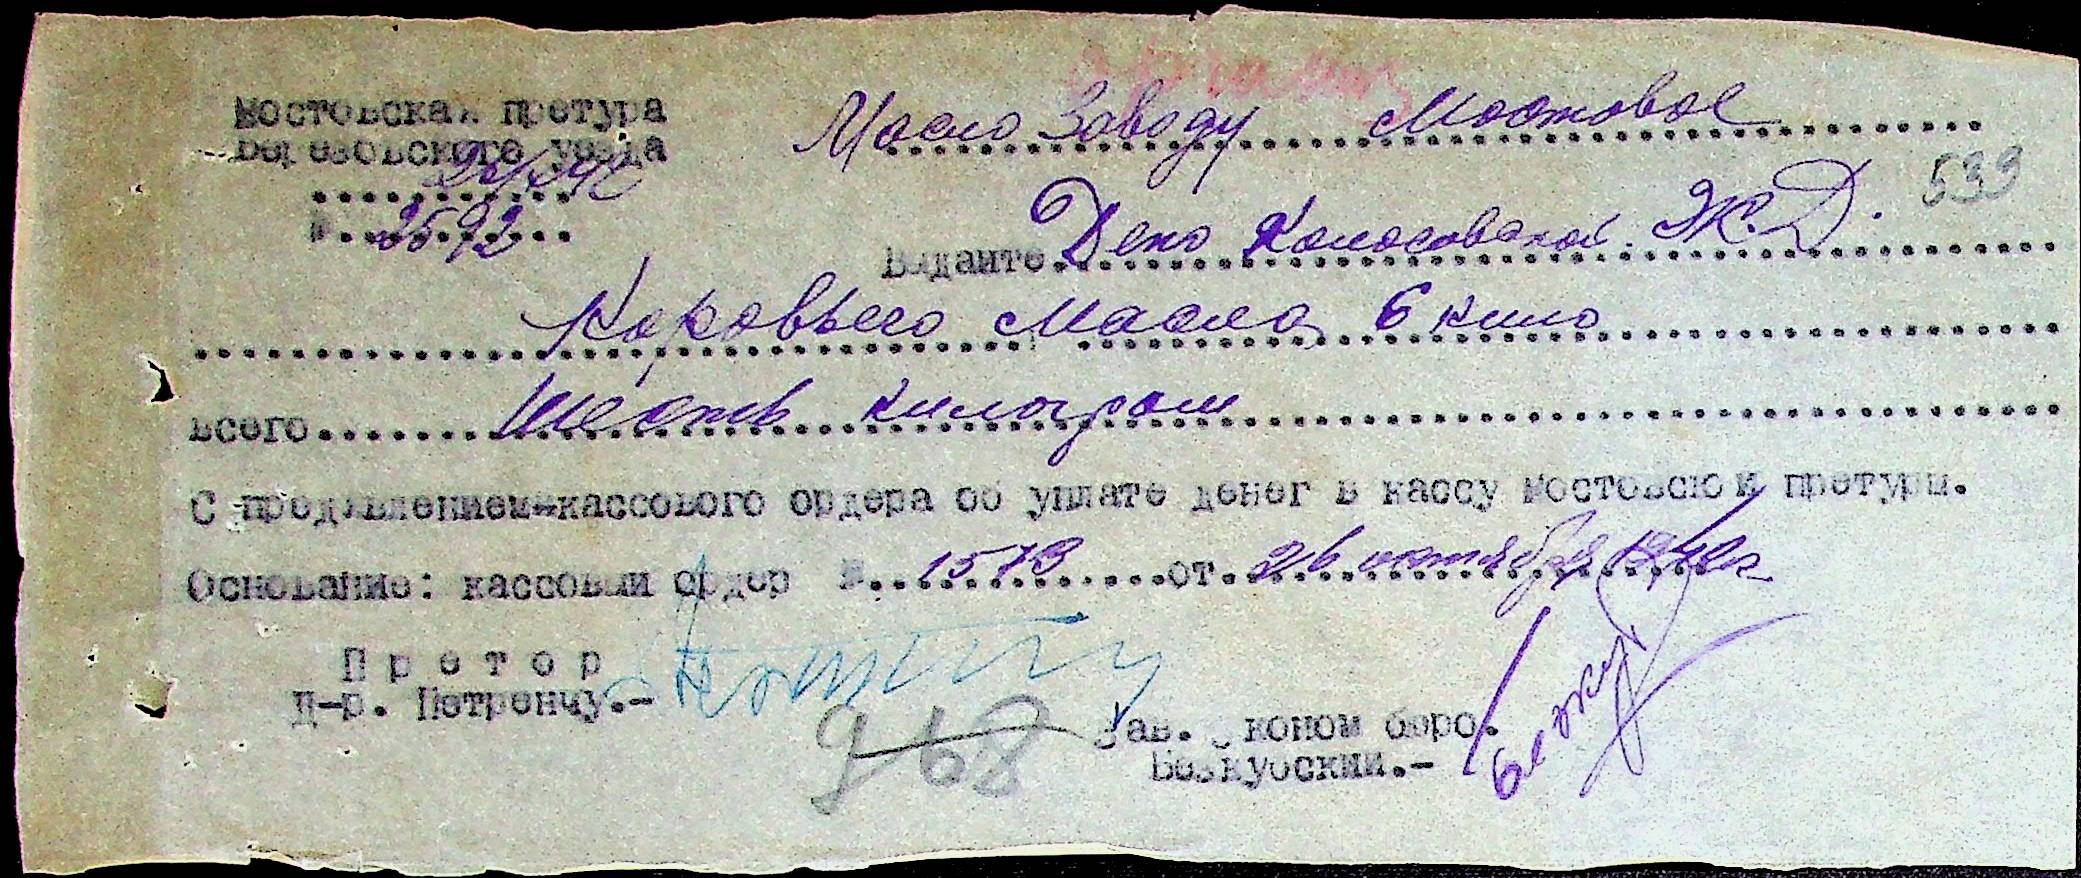 Мостовская претура
Березовского уезда
Масло Заводу Мостовое
539
№ 2592
Выдайте Депо Колосовской Ж.Д.
Коровьего Масла 6 кило
Всего Шесть килограм
С предъявлением кассового ордера об уплате денег в кассу Мостовской претуры.
Основание: кассовый ордер № 1573 от 26 октября 1942г
Претор
Д-р. Петренчу.-
968
Зав. Эконом бюро.
Безкубский.-